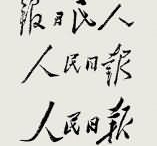 報日民人
人民日報
人民日報